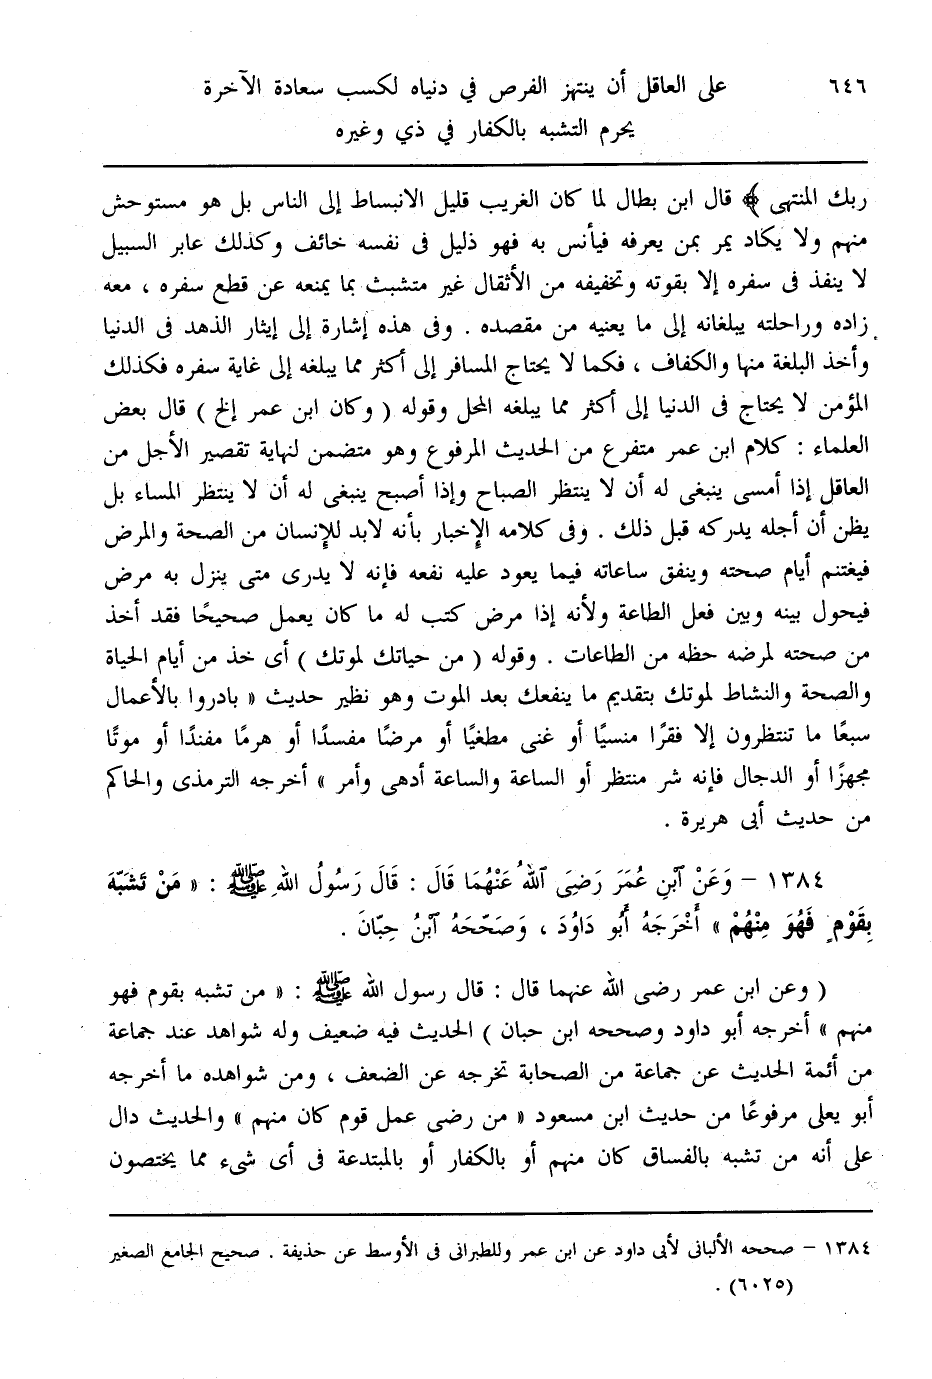 ٦٤٦ على العاقل أن ينتهز الفرص في دنياه لكسب سعادة الآخرة
يحرم التشبه بالكفار في ذي وغيره
ربك المنتهى ﴾ قال ابن بطال لما كان الغريب قليل الانبساط إلى الناس بل هو مستوحش
منهم ولا يكاد يمر بمن يعرفه فيأنس به فهو ذليل فى نفسه خائف وكذلك عابر السبيل
لا ينفذ فى سفره إلا بقوته وتخفيفه من الأثقال غير متشبث بما يمنعه عن قطع سفره ، معه
زاده وراحلته يبلغانه إلى ما يعنيه من مقصده . وفى هذه إشارة إلى إيثار الذهد فى الدنيا
وأخذ البلغة منها والكفاف ، فكما لا يحتاج المسافر إلى أكثر مما يبلغه إلى غاية سفره فكذلك
المؤمن لا يحتاج فى الدنيا إلى أكثر مما يبلغه المحل وقوله ( وكان ابن عمر إلخ ) قال بعض
العلماء : كلام ابن عمر متفرع من الحديث المرفوع وهو متضمن لنهاية تقصير الأجل من
العاقل إذا أمسى ينبغى له أن لا ينتظر الصباح وإذا أصبح ينبغى له أن لا ينتظر المساء بل
يظن أن أجله يدركه قبل ذلك . وفى كلامه الإخبار بأنه لابد للإنسان من الصحة والمرض
فيغتنم أيام صحته وينفق ساعاته فيما يعود عليه نفعه فإنه لا يدرى متى ينزل به مرض
فيحول بينه وبين فعل الطاعة ولأنه إذا مرض كتب له ما كان يعمل صحيحًا فقد أخذ
من صحته لمرضه حظه من الطاعات . وقوله ( من حياتك لموتك ) أى خذ من أيام الحياة
والصحة والنشاط لموتك بتقديم ما ينفعك بعد الموت وهو نظير حديث « بادروا بالأعمال
سبعًا ما تنتظرون إلا فقرًا منسيًا أو غنى مطغيًا أو مرضًا مفسدًا أو هرمًا مفندًا أو موتًا
مجهزًا أو الدجال فإنه شر منتظر أو الساعة والساعة أدهى وأمر » أخرجه الترمذى والحاكم
من حديث أبى هريرة .
١٣٨٤ – وَعَنْ ٱبْنِ عُمَرَ رَضِىَ ٱللهُ عَنْهُمَا قَالَ : قَالَ رَسُولُ اللهِ ﷺ : « مَنْ تَشَبَّهَ
بِقَوْمٍ فَهُوَ مِنْهُمْ » أَخْرَجَهُ أَبُو دَاوُدَ ، وَصَحَّحَهُ ٱبْنُ حِبَّانَ .
( وعن ابن عمر رضى الله عنهما قال : قال رسول الله ﷺ : « من تشبه بقوم فهو
منهم » أخرجه أبو داود وصححه ابن حبان ) الحديث فيه ضعيف وله شواهد عند جماعة
من أئمة الحديث عن جماعة من الصحابة تخرجه عن الضعف ، ومن شواهده ما أخرجه
أبو يعلى مرفوعًا من حديث ابن مسعود « من رضى عمل قوم كان منهم » والحديث دال
على أنه من تشبه بالفساق كان منهم أو بالكفار أو بالمبتدعة فى أى شىء مما يختصون
١٣٨٤ – صححه الألبانى لأبى داود عن ابن عمر وللطبرانى فى الأوسط عن حذيفة . صحيح الجامع الصغير
(٦٠٢٥) .